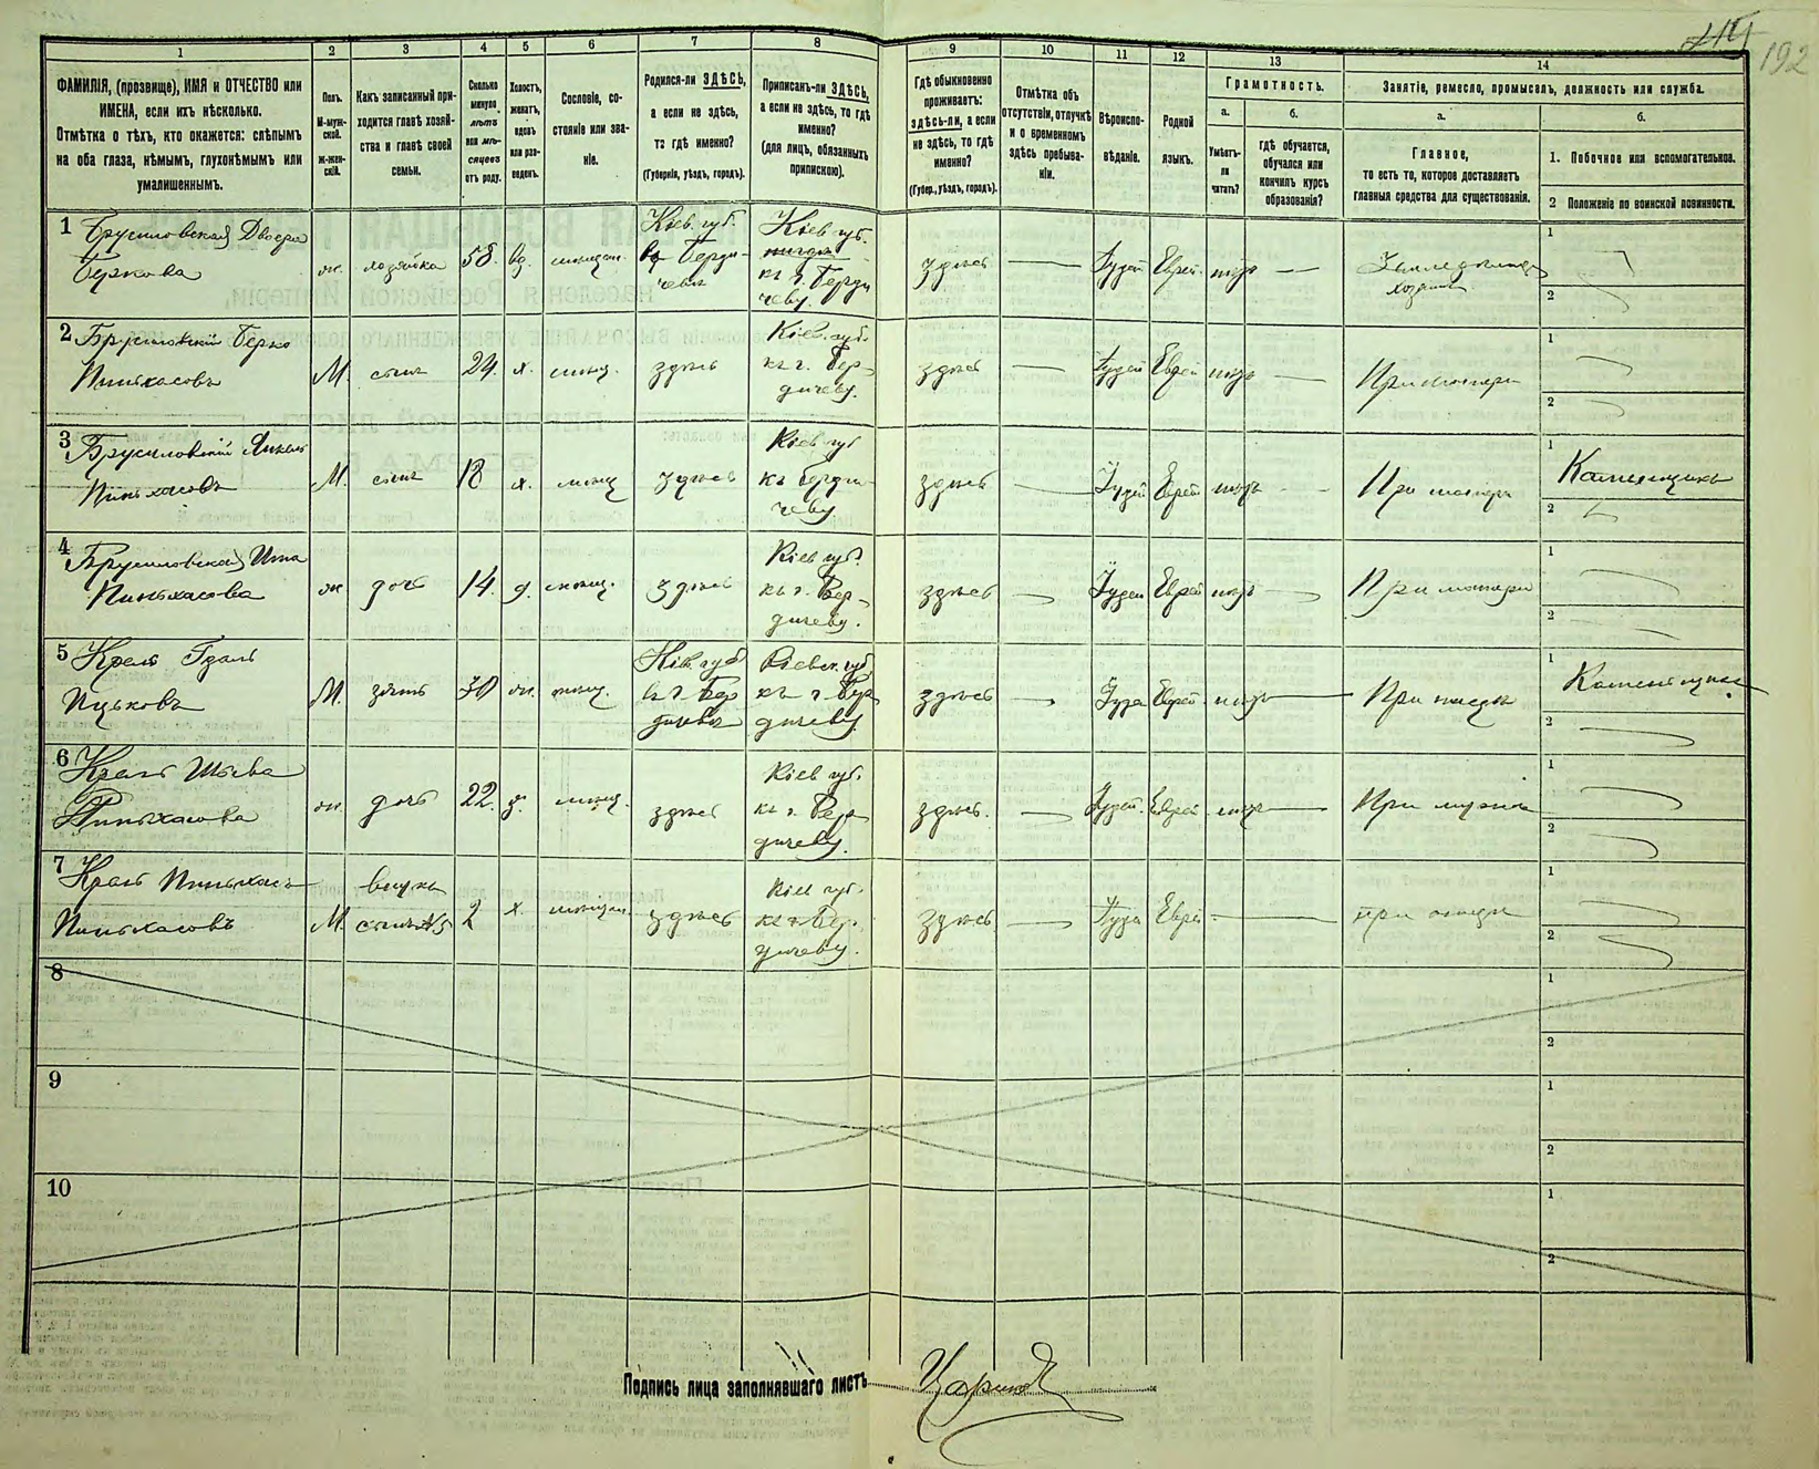 114
192
1
2
3
4
5
6
7
8
9
10
11
12
13
14
ФАМИЛІЯ, (прозвище), ИМЯ и ОТЧЕСТВО или
ИМЕНА, если ихъ нѣсколько.
Отмѣтка о тѣхъ, кто окажется: слѣпымъ
на оба глаза, нѣмымъ, глухонѣмымъ или
умалишеннымъ.
Полъ.
М-муж-
ской.
Ж-жен-
скій.
Какъ записанный при-
ходится главѣ хозяй-
ства и главѣ своей
семьи.
Сколько
минуло
лѣтъ
или мѣ-
сяцевъ
отъ роду.
Холостъ,
женатъ,
вдовъ
или раз-
веденъ.
Сословіе, со-
стояніе или зва-
ніе.
Родился-ли ЗДѢСЬ,
а если не здѣсь,
то гдѣ именно?
(Губернія, уѣздъ, городъ).
Приписанъ-ли ЗДѢСЬ,
а если не здѣсь, то гдѣ
именно?
(для лицъ, обязанныхъ
припискою).
Гдѣ обыкновенно
проживаетъ:
здѣсь-ли, а если
не здѣсь, то гдѣ
именно?
(Губер., уѣздъ, городъ).
Отмѣтка объ
отсутствіи, отлучкѣ
и о временномъ
здѣсь пребыва-
ніи.
Вѣроиспо-
вѣданіе.
Родной
языкъ.
Грамотность.
а.
Умѣетъ-
ли
читать?
б.
гдѣ обучается,
обучался или
кончилъ курсъ
образованія?
Занятіе, ремесло, промыселъ, должность или служба.
а.
Главное,
то есть то, которое доставляетъ
главныя средства для существованія.
б.
1. Побочное или вспомогательное.
2 Положеніе по воинской повинности.
1 Брусиловская Двойра
Беркова
ж. хозяйка 58. вд. мѣщан.
Кіев. губ.
въ Берди-
чевѣ
Кіев губ.
къ г. Берди
чеву.
здѣсь Іудей Еврей. нѣтъ
хозяйка
1
2
2 Брусиловскій Берко
Пинькасовъ
М. сынъ 24. х. мѣщ. здѣсь
Кіев. губ.
къ г. Бер-
дичеву.
здѣсь Іудей Еврей нѣтъ При матери
1
2
3 Брусиловскій Янкель
Пинькасовъ
М. сынъ 18 х. мѣщ здѣсь
Кіев губ
къ Берди-
чеву
здѣсь Іудей Еврей нѣтъ При матери
1
Каменщикъ
2
4 Брусиловская Ита
Пинькасова
ж дочь 14. д. мѣщ. здѣсь
Кіев губ.
къ г. Бер-
дичеву.
здѣсь Іудей Еврей нѣтъ При матери
1
2
5 Крель Гдаль
Ицьковъ
М. зять 30 ж. мѣщ.
Кіев. губ
въ г. Бер
дичевѣ
Кіевск. губ
къ г. Бер
дичеву
здѣсь Іудей Еврей. нѣтъ
1
Каменщикъ
2
6 Крель Шейва
Пинькасова
ж. дочь 22. з. мѣщ. здѣсь
Кіев губ.
къ г. Бер
дичеву.
здѣсь. Іудей. Еврей нѣтъ При мужѣ
1
2
7 Крель Пинькасъ
Пинькасовъ
М.
внукъ
сынъ №5
2 х. мѣщан. здѣсь
Кіев губ.
къ г. Бер.
дичеву.
здѣсь Іудей Еврей при отцѣ
1
2
8
1
2
9
1
2
10
1
2
Подпись лица заполнявшаго листъ